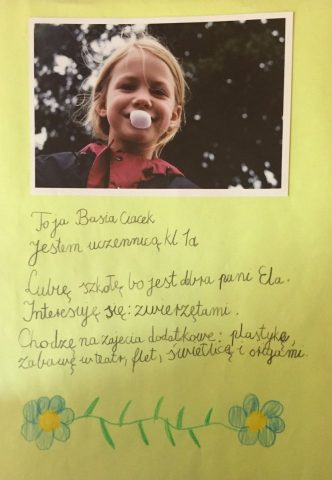 To ja Basia Ciacek
Jestem uczennicą kl. 1a
Lubię szkołę bo jest dobra pani Ela.
Interesuję się: zwierzętami.
Chodzę na zajęcia dodatkowe: plastykę,
zabawę w teatr, flet, świetlicę i origami.